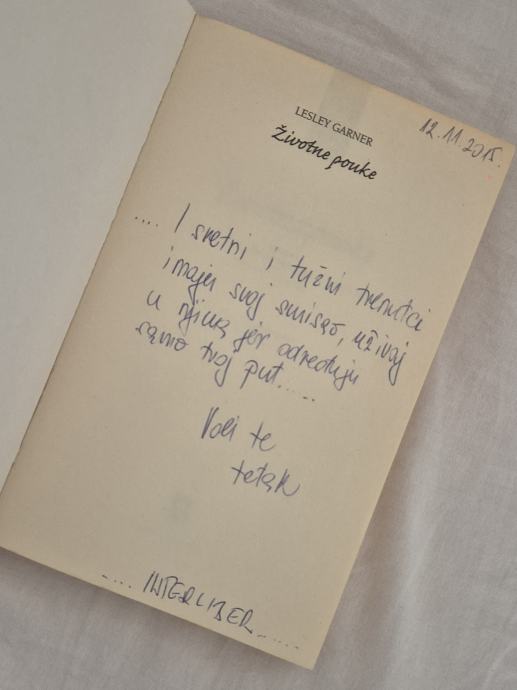 LESLEY GARNER
Životne pouke
12.11.2015.
.... I sretni i tužni trenutci
imaju svoj smisao, uživaj
u njima jer određuju
samo tvoj put.....
Voli te
tetak
.... INTERLIBER ......